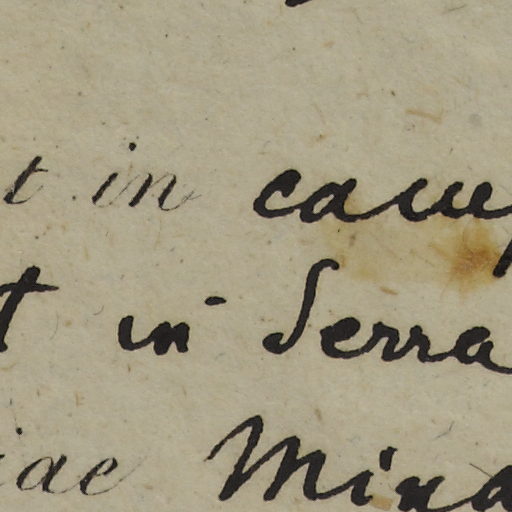 t in camp
t in Serra
iae Mina